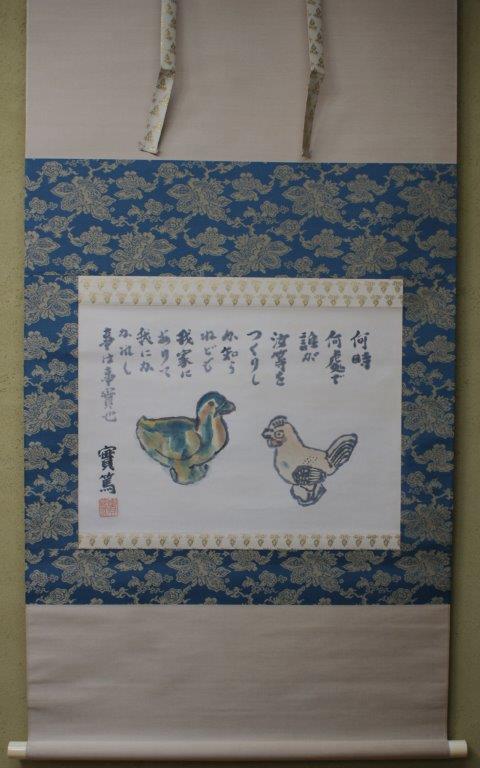 何時
何處で
誰が
汝等を
つくりし
か知ら
ねども
我家に
ありて
我にか
かはし
事は事實也
實篤